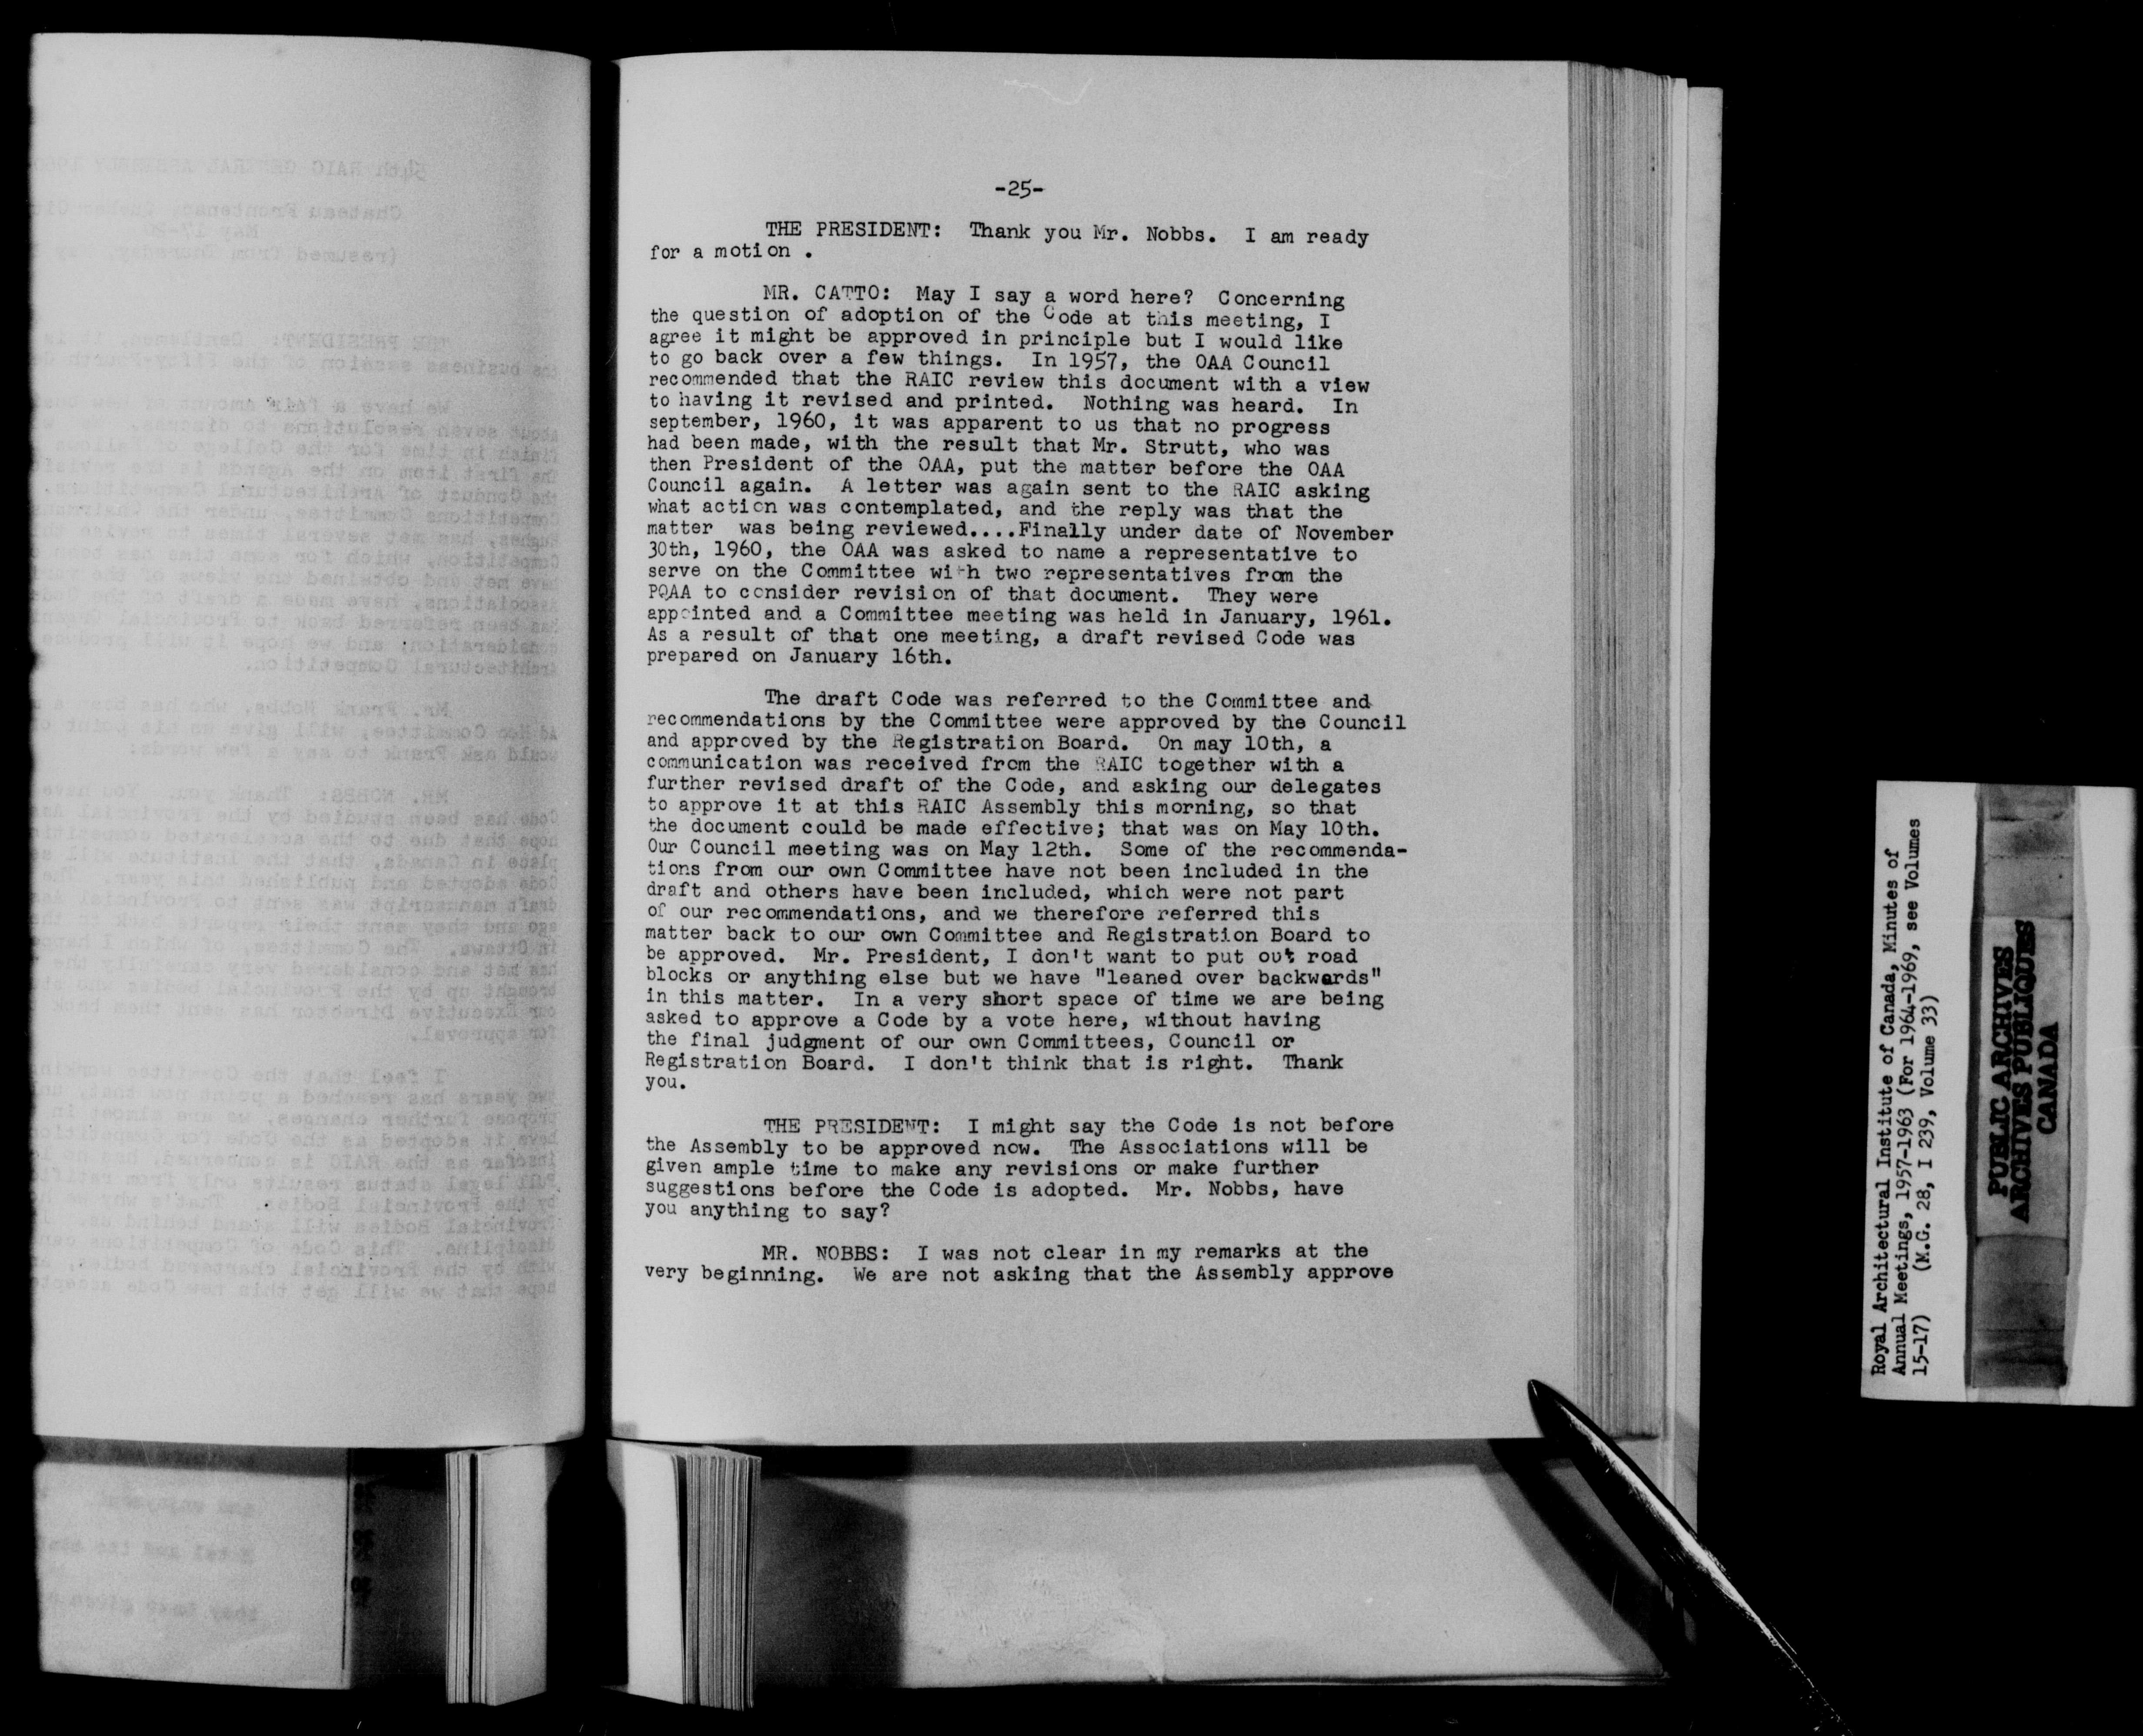 -25-
THE PRESIDENT: Thank you Mr. Nobbs. I am ready
for a motion .
MR. CATTO: May I say a word here? Concerning
the question of adoption of the Code at this meeting, I
agree it might be approved in principle but I would like
to go back over a few things. In 1957, the OAA Council
recommended that the RAIC review this document with a view
to having it revised and printed. Nothing was heard. In
september, 1960, it was apparent to us that no progress
had been made, with the result that Mr. Strutt, who was
then President of the OAA, put the matter before the OAA
Council again. A letter was again sent to the RAIC asking
what action was contemplated, and the reply was that the
matter was being reviewed....Finally under date of November
30th, 1960, the OAA was asked to name a representative to
serve on the Committee with two representatives from the
PQAA to consider revision of that document. They were
appointed and a Committee meeting was held in January, 1961.
As a result of that one meeting, a draft revised Code was
prepared on January 16th.
The draft Code was referred to the Committee and
recommendations by the Committee were approved by the Council
and approved by the Registration Board. On may 10th, a
communication was received from the RAIC together with a
further revised draft of the Code, and asking our delegates
to approve it at this RAIC Assembly this morning, so that
the document could be made effective; that was on May 10th.
Our Council meeting was on May 12th. Some of the recommenda-
tions from our own Committee have not been included in the
draft and others have been included, which were not part
of our recommendations, and we therefore referred this
matter back to our own Committee and Registration Board to
be approved. Mr. President, I don't want to put out road
blocks or anything else but we have "leaned over backwards"
in this matter. In a very short space of time we are being
asked to approve a Code by a vote here, without having
the final judgment of our own Committees, Council or
Registration Board. I don't think that is right. Thank
you.
THE PRESIDENT: I might say the Code is not before
the Assembly to be approved now. The Associations will be
given ample time to make any revisions or make further
suggestions before the Code is adopted. Mr. Nobbs, have
you anything to say?
MR. NOBBS: I was not clear in my remarks at the
very beginning. We are not asking that the Assembly approve
Royal Architectural Institute of Canada, Minutes of
Annual Meetings, 1957-1963 (For 1964-1969, see Volumes
15-17) (M.G. 28, I 239, Volume 33)
PUBLIC ARCHIVES
ARCHIVES PUBLIQUES
CANADA